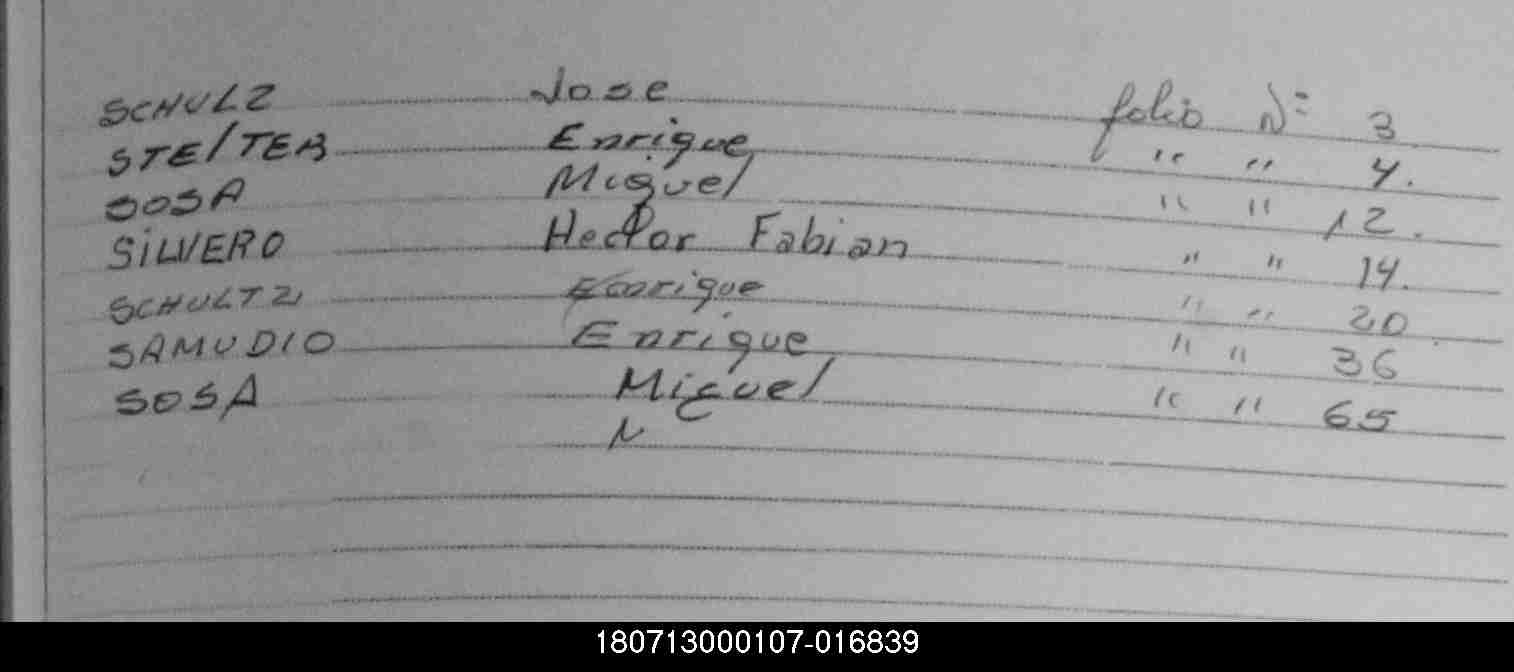 SCHULZ Jose folio Nº 3
STEITER Enrique " " 4.
SOSA Miguel " " 12.
SiLVERO Hector Fabian " " 14.
SCHULTZ Enrique " " 20
SAMUDIO Enrique " " 36
SOSA Miguel " " 65
N
180713000107-016839